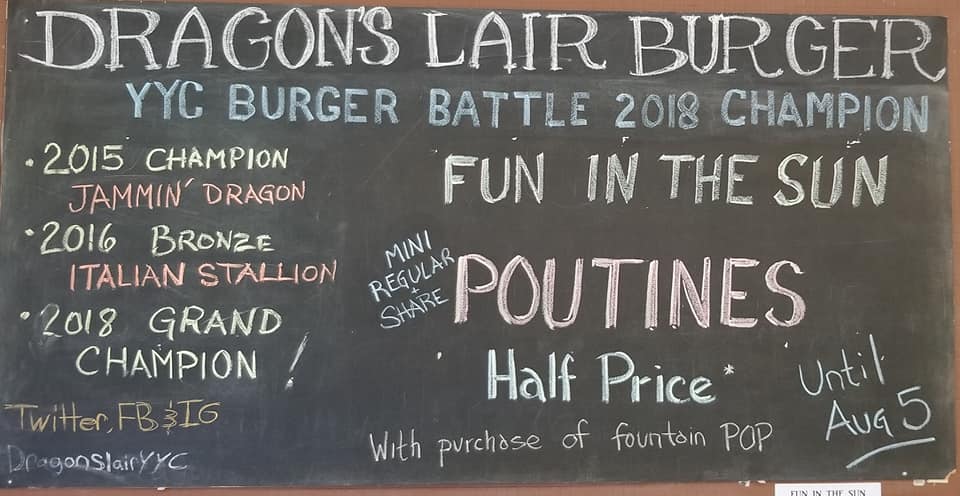 DRAGON'S LAIR BURGER
YYC BURGER BATTLE 2018 CHAMPION
• 2015 CHAMPION
JAMMIN' DRAGON
• 2016 BRONZE
ITALIAN STALLION
• 2018 GRAND
CHAMPION!
Twitter, FB & IG
DragonslairYYC
FUN IN THE SUN
MINI
REGULAR
+
SHARE
POUTINES
Half Price*
With purchase of fountain POP
Until
Aug 5
FUN IN THE SUN